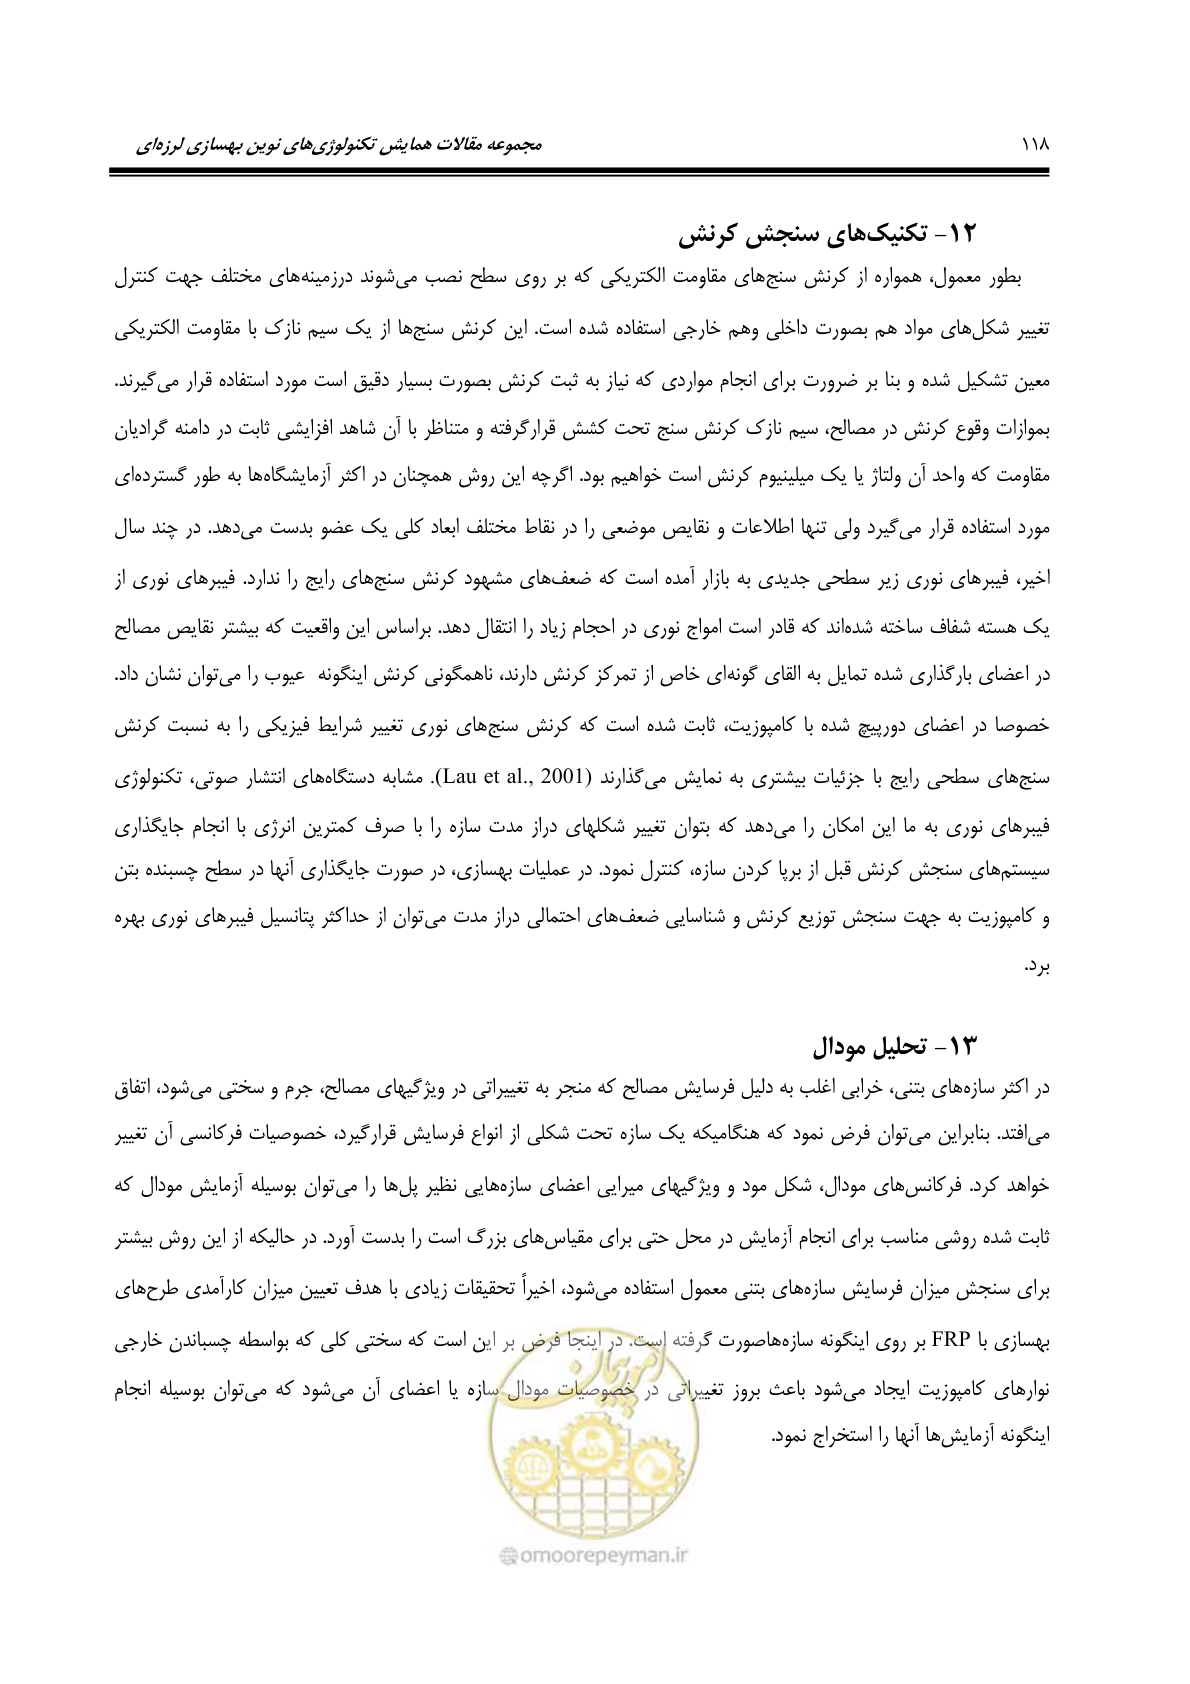 ۱۱۸
مجموعه مقالات همایش تکنولوژی‌های نوین بهسازی لرزه‌ای
۱۲- تکنیک‌های سنجش کرنش
بطور معمول، همواره از کرنش سنج‌های مقاومت الکتریکی که بر روی سطح نصب می‌شوند درزمینه‌های مختلف جهت کنترل
تغییر شکل‌های مواد هم بصورت داخلی وهم خارجی استفاده شده است. این کرنش سنج‌ها از یک سیم نازک با مقاومت الکتریکی
معین تشکیل شده و بنا بر ضرورت برای انجام مواردی که نیاز به ثبت کرنش بصورت بسیار دقیق است مورد استفاده قرار می‌گیرند.
بموازات وقوع کرنش در مصالح، سیم نازک کرنش سنج تحت کشش قرارگرفته و متناظر با آن شاهد افزایشی ثابت در دامنه گرادیان
مقاومت که واحد آن ولتاژ یا یک میلینیوم کرنش است خواهیم بود. اگرچه این روش همچنان در اکثر آزمایشگاه‌ها به طور گسترده‌ای
مورد استفاده قرار می‌گیرد ولی تنها اطلاعات و نقایص موضعی را در نقاط مختلف ابعاد کلی یک عضو بدست می‌دهد. در چند سال
اخیر، فیبرهای نوری زیر سطحی جدیدی به بازار آمده است که ضعف‌های مشهود کرنش سنج‌های رایج را ندارد. فیبرهای نوری از
یک هسته شفاف ساخته شده‌اند که قادر است امواج نوری در احجام زیاد را انتقال دهد. براساس این واقعیت که بیشتر نقایص مصالح
در اعضای بارگذاری شده تمایل به القای گونه‌ای خاص از تمرکز کرنش دارند، ناهمگونی کرنش اینگونه عیوب را می‌توان نشان داد.
خصوصا در اعضای دورپیچ شده با کامپوزیت، ثابت شده است که کرنش سنج‌های نوری تغییر شرایط فیزیکی را به نسبت کرنش
سنج‌های سطحی رایج با جزئیات بیشتری به نمایش می‌گذارند (Lau et al., 2001). مشابه دستگاه‌های انتشار صوتی، تکنولوژی
فیبرهای نوری به ما این امکان را می‌دهد که بتوان تغییر شکلهای دراز مدت سازه را با صرف کمترین انرژی با انجام جایگذاری
سیستم‌های سنجش کرنش قبل از برپا کردن سازه، کنترل نمود. در عملیات بهسازی، در صورت جایگذاری آنها در سطح چسبنده بتن
و کامپوزیت به جهت سنجش توزیع کرنش و شناسایی ضعف‌های احتمالی دراز مدت می‌توان از حداکثر پتانسیل فیبرهای نوری بهره
برد.
۱۳- تحلیل مودال
در اکثر سازه‌های بتنی، خرابی اغلب به دلیل فرسایش مصالح که منجر به تغییراتی در ویژگیهای مصالح، جرم و سختی می‌شود، اتفاق
می‌افتد. بنابراین می‌توان فرض نمود که هنگامیکه یک سازه تحت شکلی از انواع فرسایش قرارگیرد، خصوصیات فرکانسی آن تغییر
خواهد کرد. فرکانس‌های مودال، شکل مود و ویژگیهای میرایی اعضای سازه‌هایی نظیر پل‌ها را می‌توان بوسیله آزمایش مودال که
ثابت شده روشی مناسب برای انجام آزمایش در محل حتی برای مقیاس‌های بزرگ است را بدست آورد. در حالیکه از این روش بیشتر
برای سنجش میزان فرسایش سازه‌های بتنی معمول استفاده می‌شود، اخیراً تحقیقات زیادی با هدف تعیین میزان کارآمدی طرح‌های
بهسازی با FRP بر روی اینگونه سازه‌هاصورت گرفته است. در اینجا فرض بر این است که سختی کلی که بواسطه چسباندن خارجی
نوارهای کامپوزیت ایجاد می‌شود باعث بروز تغییراتی در خصوصیات مودال سازه یا اعضای آن می‌شود که می‌توان بوسیله انجام
اینگونه آزمایش‌ها آنها را استخراج نمود.
امور پیمان
@omoorepeyman.ir